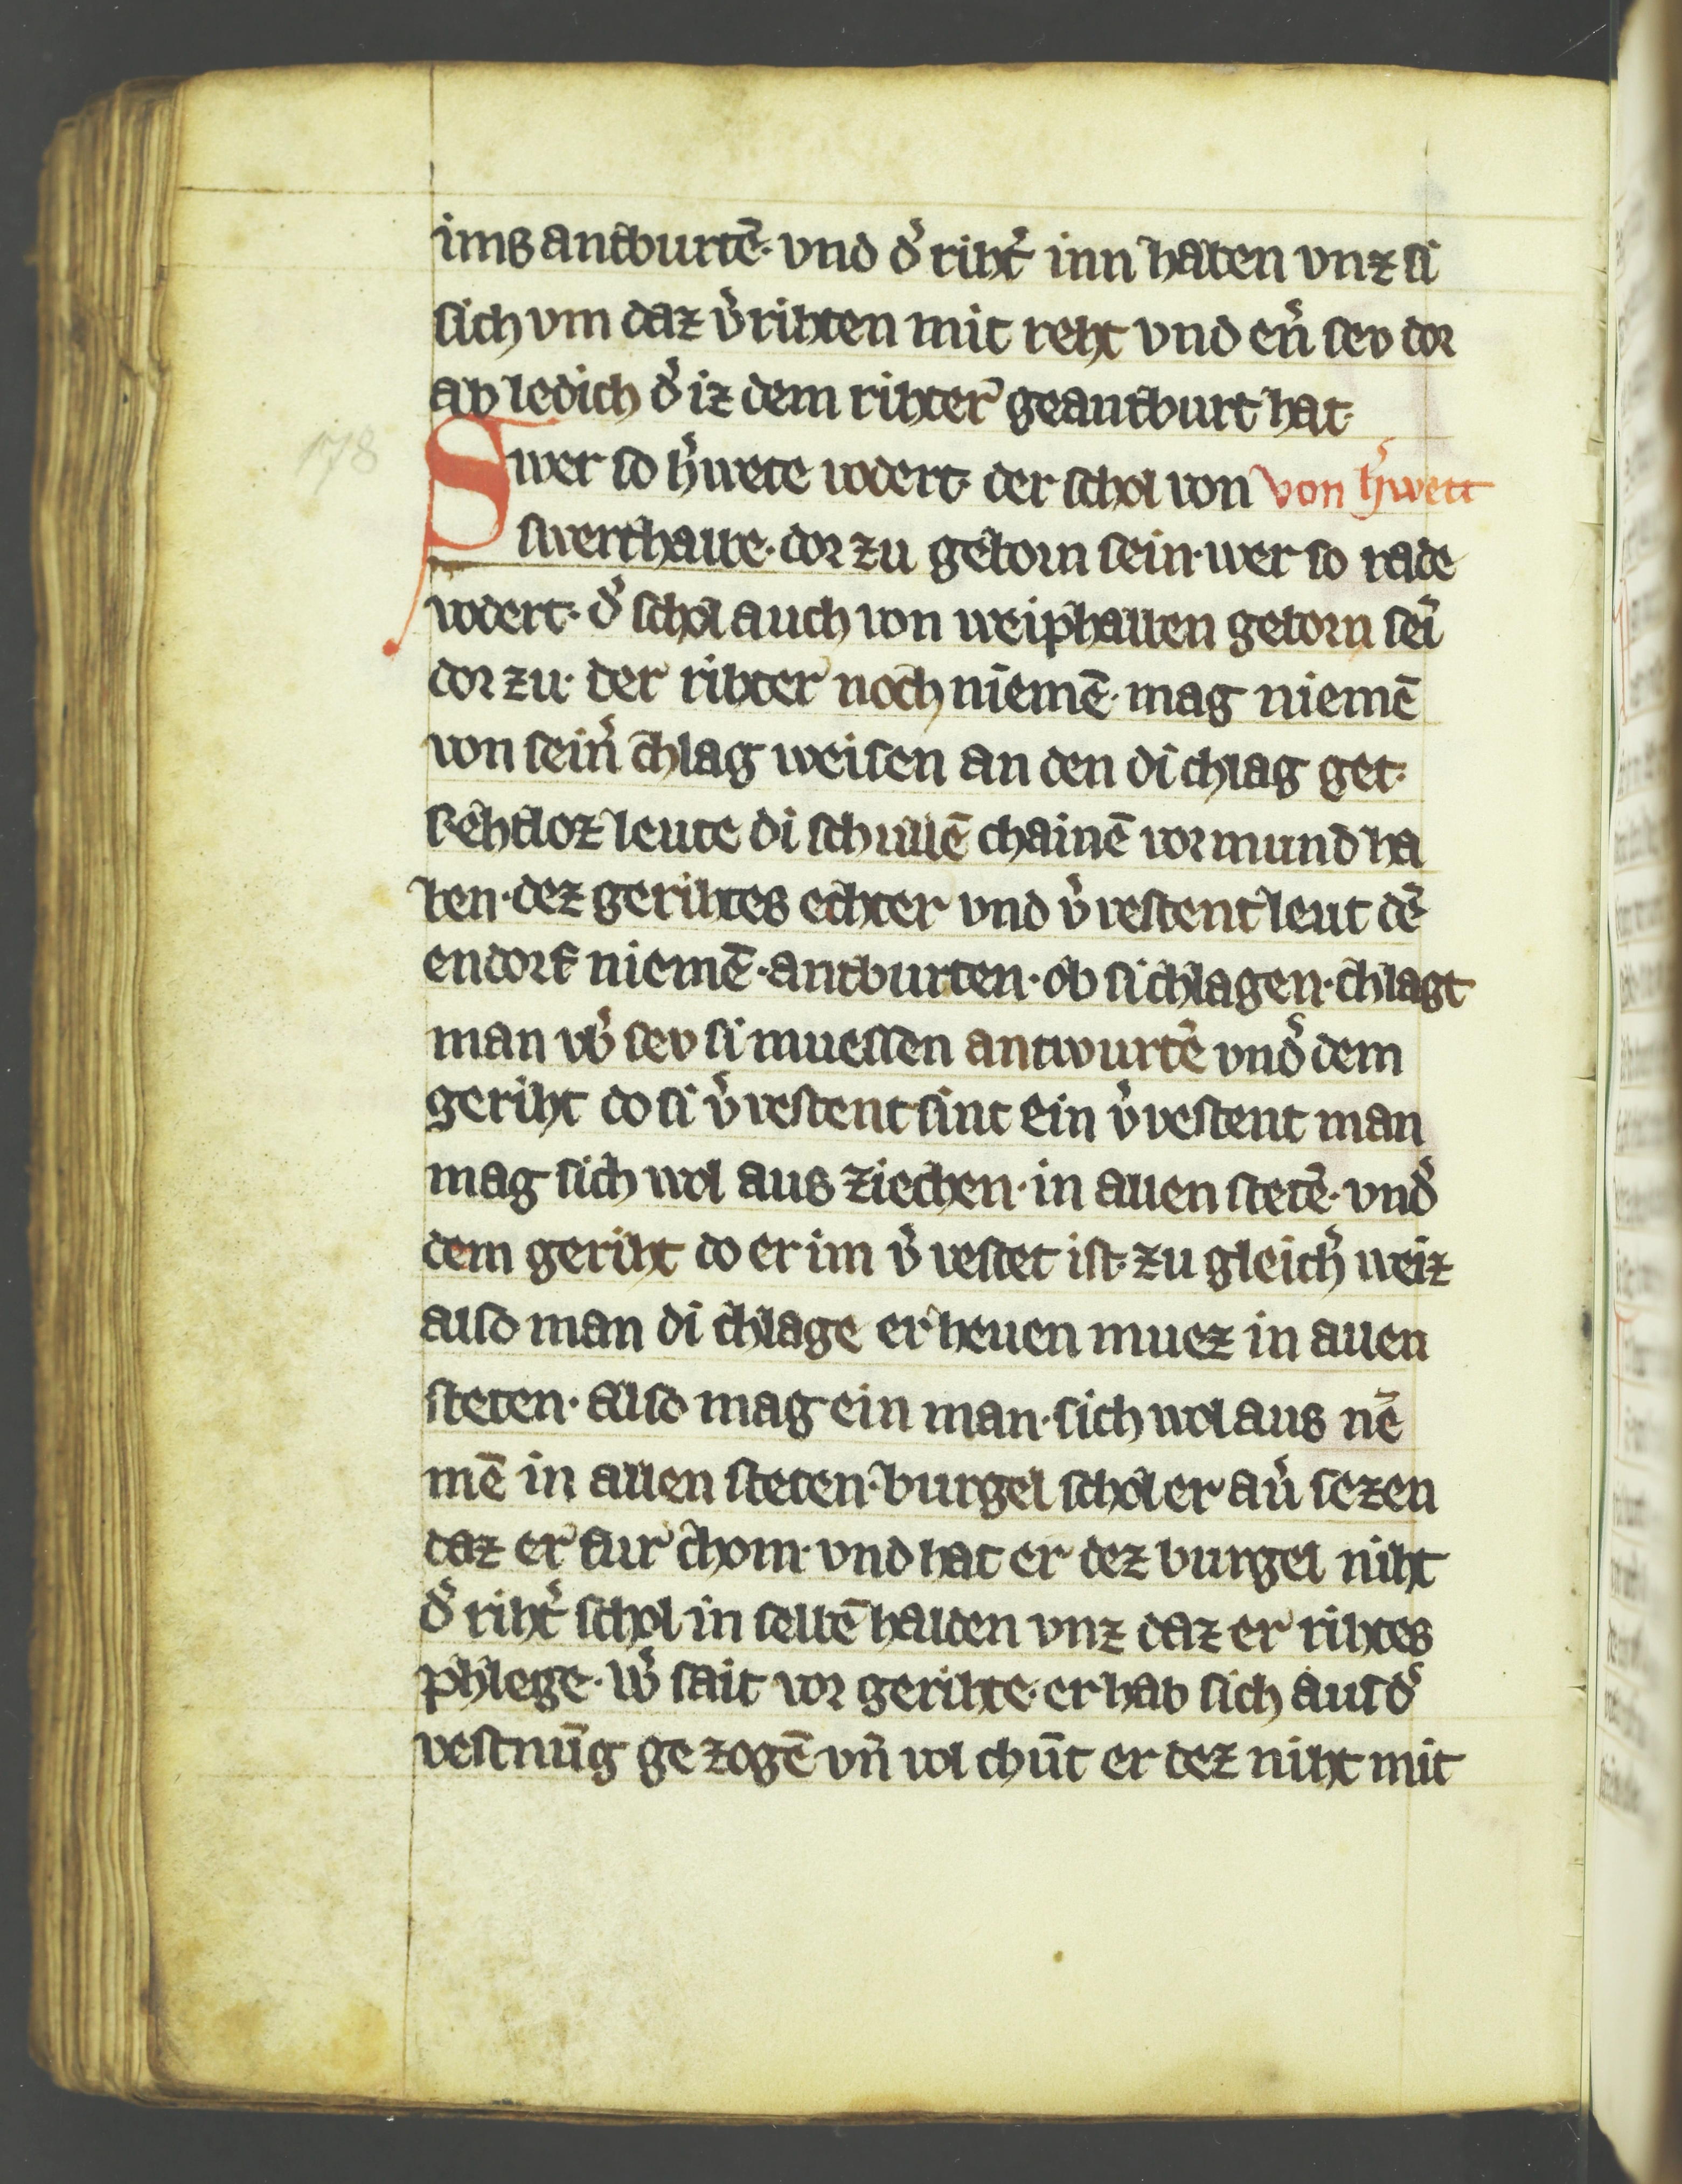 ims antwurtē· vnd d̾ riht̾ inn haben vnz si
sich vm daz v̾rihten mit reht vnd en̾ sev dor
ab ledich d̾ iz dem rihter geantwurt hat·
Swer so h̾wete vodert· der schol von von h̾wett
swerthalbe· dor zu geborn sein· wer so rade
vodert· d̾ schol auch von weiphalben geborn sei̅
dor zu· der rihter noch niemē· mag niemē
von sein̾ chlag weisen an den di chlag get·
Rehtloz leute di schullē chainē vormund ha
ben· dez gerihtes echter vnd v̾vestent leut dē
endorf niemē· antwurten· ob si chlagen· chlagt
man vb̾ sev si muessen antwurtē vnd̾ dem
geriht do si v̾vestent sint Ein v̾vestent man
mag sich wol aus ziechen· in allen stetē· vnd̾
dem geriht do er im v̾vestet ist· zu gleich̾ weiz
also man di chlage erheuen muez in allen
steten· also mag ein man· sich wol aus nē
mē in allen steten· burgel schol er au̾ sezen
daz er fur chom· vnd hat er dez burgel niht
d̾ riht̾ schol in selbē halden vnz daz er rihtes
phlege· W̾ sait vor gerihte· er hab sich aus d̾
vestnūg gezogē vn̄ vol chūt er dez niht mit
178